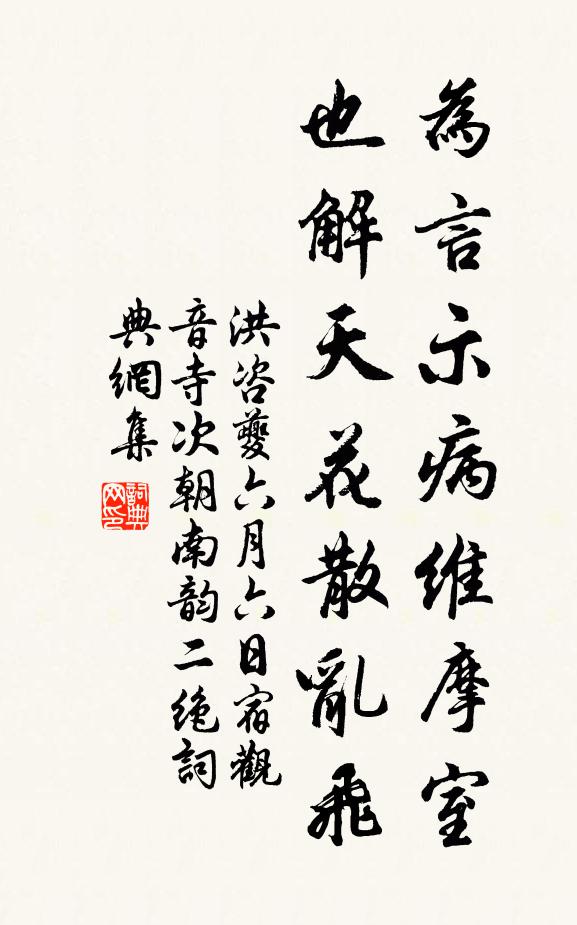 為言示病維摩室
也解天花散亂飛
洪咨夔六月六日宿觀
音寺次朝南韵二絶詞
典網集
詞典
网印